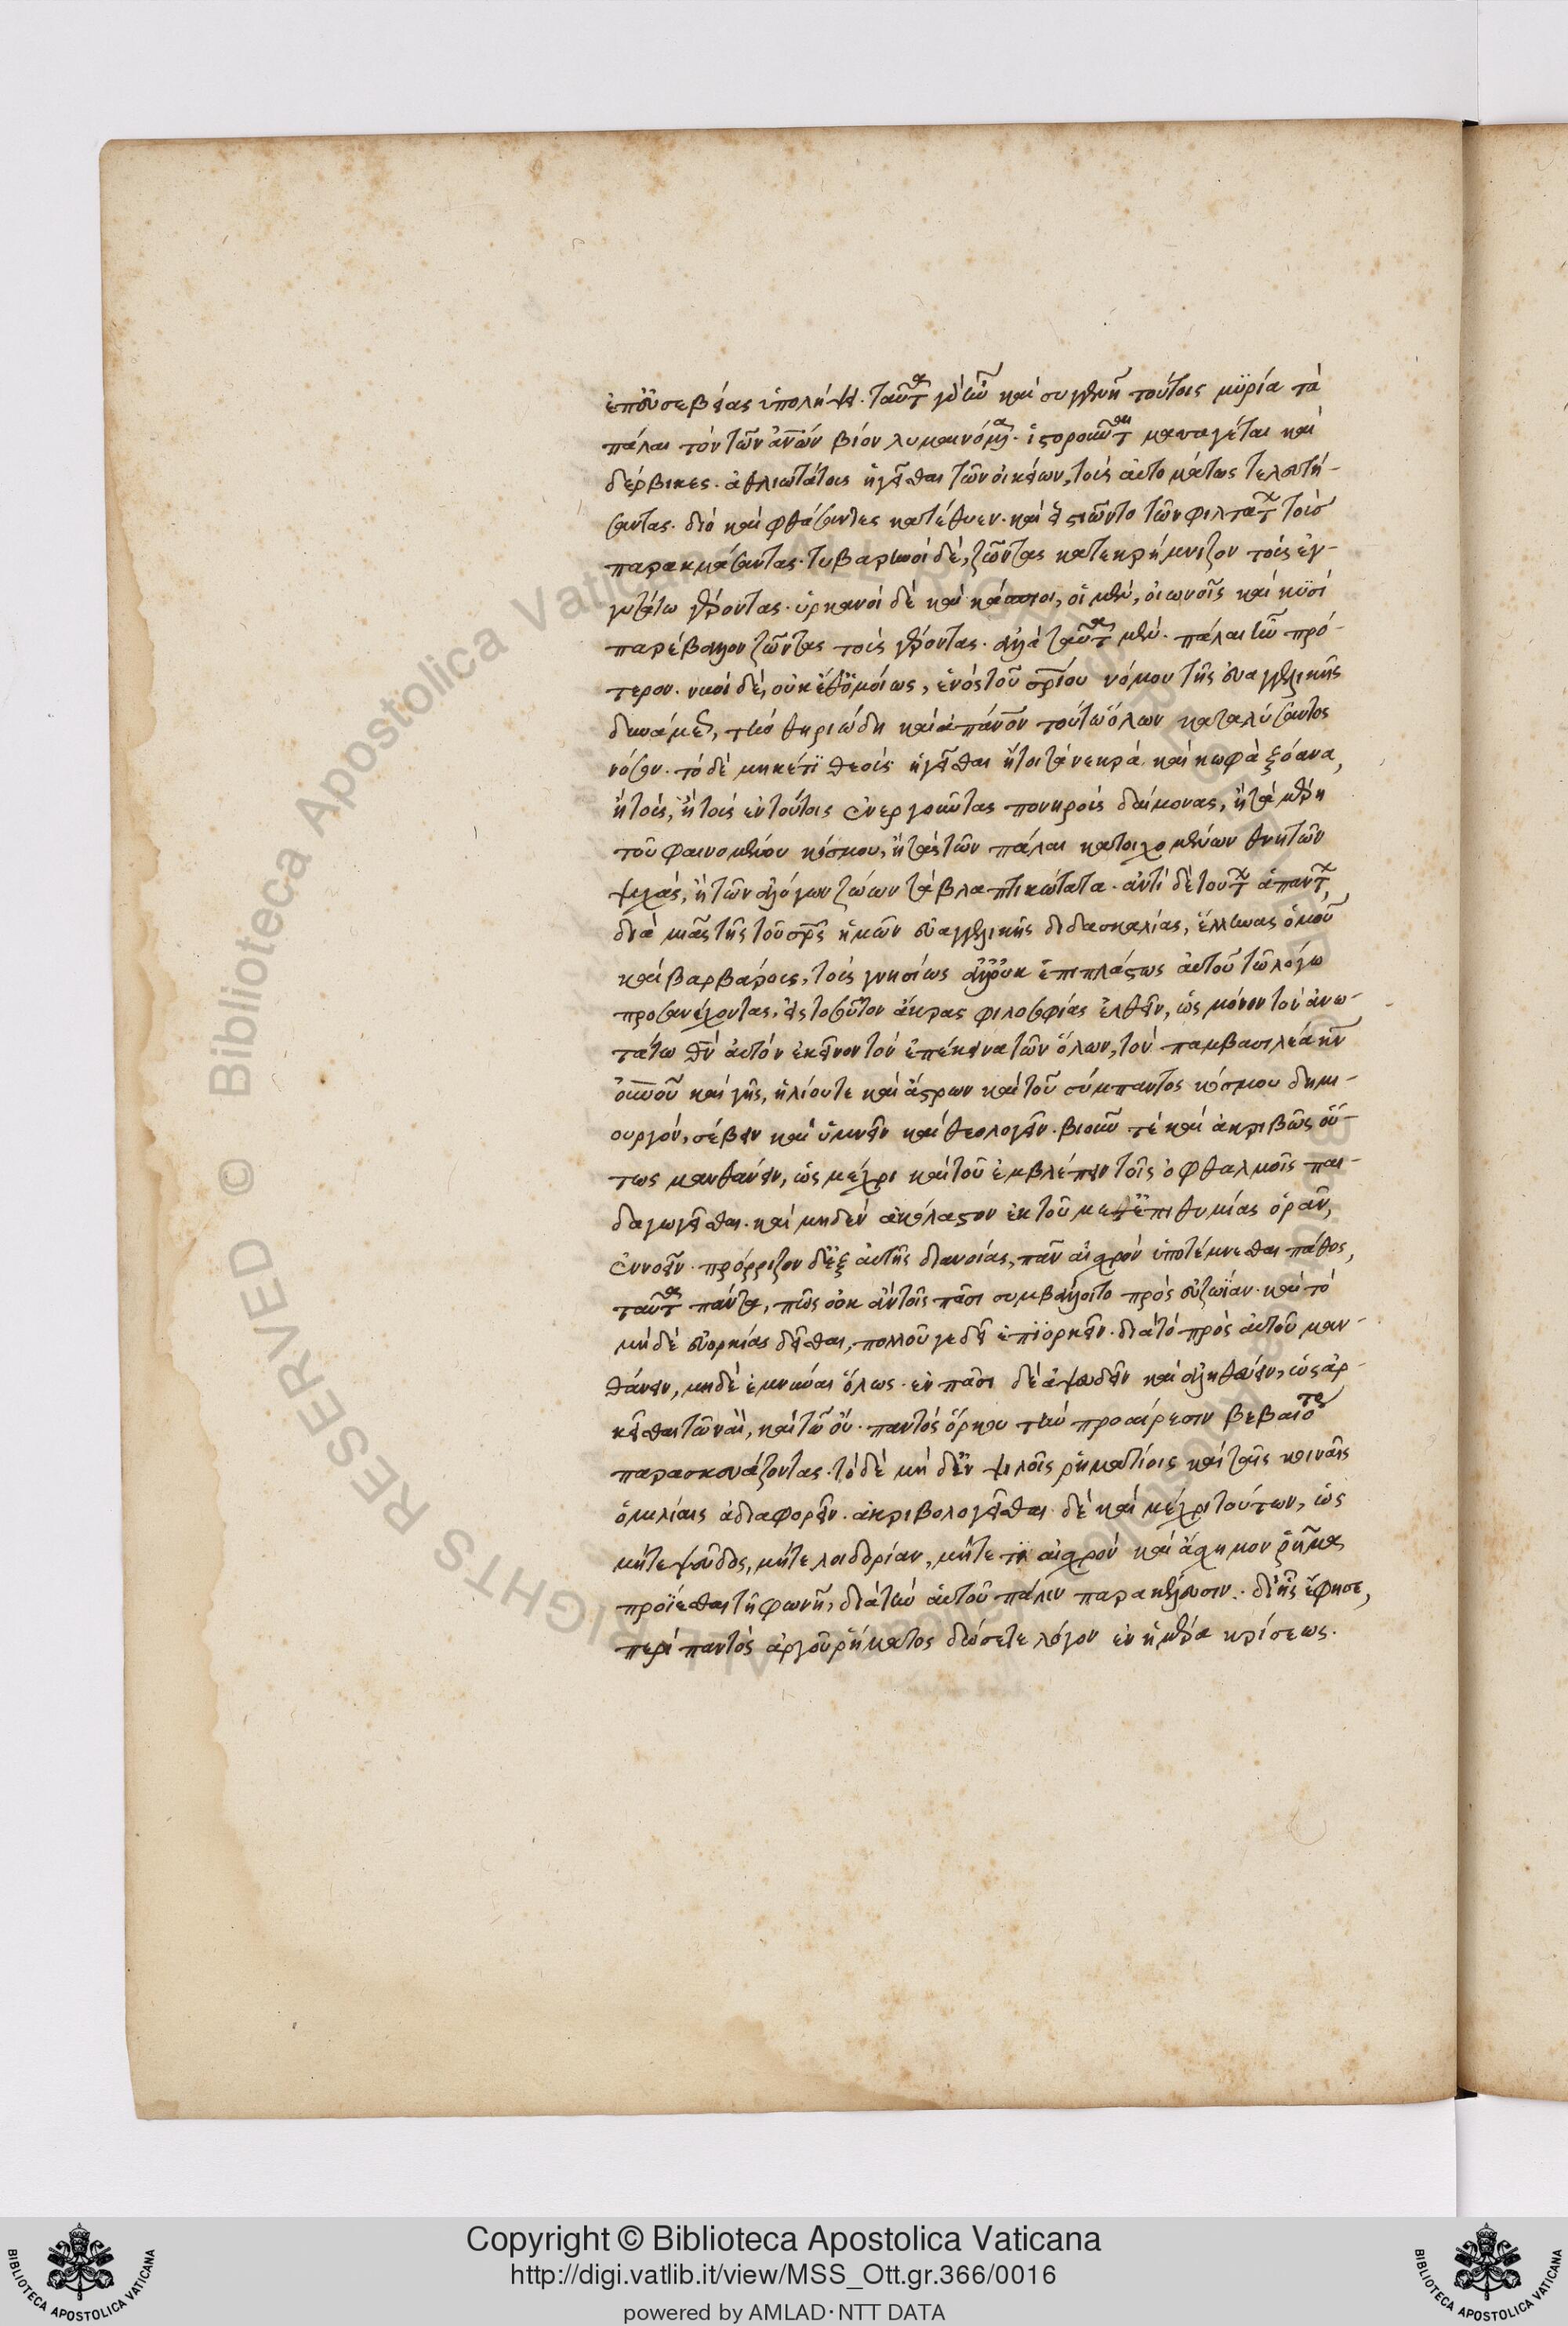 ἐπ' εὐσεβείας ὑπολήψει. ταῦτα γὰρ ἦν καὶ συγγενῆ τούτοις μϋρία τὰ
πάλαι τὸν τῶν ἀνων βίον λυμαινόμενα. ἱστοροῦνται μασαγέται καὶ
δέρβικες. ἀθλιωτάτους ἡγεῖσθαι τῶν οἰκείων, τοὺς αὐτομάτως τελευτή-
σαντας. διὸ καὶ φθάσαντες κατέθυον. καὶ εἱστιῶντο τῶν φιλτάτων τοὺσ
παρακμάσαντας. τυβαρηνοὶ δὲ, ζῶντας κατεκρήμνιζον τοὺς ἐγ-
γυτάτω γέροντας. ὑρκανοὶ δὲ καὶ κάσπιοι, οἱ μὲν, οἰωνοῖς καὶ κϋσὶ
παρέβαλλον ζῶντας τοὺς γέροντας. ἀλλὰ ταῦτα μὲν. πάλαι τῶν πρό-
τερον. νυνὶ δὲ, οὐκέθ' ὁμοίως, ἑνὸς τοῦ σρίου νόμου τῆς εὐαγγελικῆς
δυνάμεως, τὴν θηριώδη καὶ ἀπάνον τούτων ὅλων καταλύσαντος
νόσον. τὸ δὲ μηκέτϊ θεοὺς ἡγεῖσθαι ἤτοι τὰ νεκρὰ καὶ κωφὰ ξόανα,
ἢ τοὺς, ἢ τοὺς ἐν τούτοις ἐνεργοῦντας πονηροὺς δαίμονας, ἢ τὰ μέρη
τοῦ φαινομένου κόσμου, ἢ τὰς τῶν πάλαι κατοιχομένων θνητῶν
ψυχὰς, ἢ τῶν ἀλόγων ζώων τὰ βλαπτικώτατα. ἀντὶ δὲ τούτων ἁπάντων,
διὰ μιᾶς τῆς τοῦ σρς ἡμῶν εὐαγγελικῆς διδασκαλίας, ἕλληνας ὁμοῦ
καὶ βαρβάρους, τοὺς γνησίως ἀλλ' οὐκ ἐπιπλάστως αὐτοῦ τῶ λόγω
προσανέχοντας, εἰς τοσοῦτον ἄκρας φιλοσοφίας ἐλθεῖν, ὡς μόνον τὸν ἀνω-
τάτω θν αὐτὸν ἐκεῖνον τὸν ἐπέκεινα τῶν ὅλων, τὸν παμβασιλέα κν
οὐνοῦ καὶ γῆς, ἡλίου τε καὶ ἄστρων καὶ τοῦ σύμπαντος κόσμου δημι-
ουργὸν, σέβειν καὶ ὑμνεῖν καὶ θεολογεῖν. βιοῦν τὲ καὶ ἀκριβῶς οὕ-
τως μανθάνειν, ὡς μέχρι καὶ τοῦ ἐμβλέπειν τοῖς ὀφθαλμοῖς παι-
δαγωγεῖσθαι. καὶ μηδὲν ἀκόλαστον ἐκ τοῦ μετ' ἐπιθυμίας ὁρᾶν,
ἐννοεῖν. πρόρριζον δ' ἐξ αὐτῆς διανοίας, πᾶν αἰσχρὸν ὑποτέμνεσθαι πάθος,
ταῦτα πάντα, πῶς οὐκ ἂν τοῖς πᾶσι συμβάλλοιτο πρὸς εὐζωΐαν. καὶ τὸ
μὴ δὲ εὐορκίας δεῖσθαι, πολλοῦ γε δεῖ ἐπϊορκεῖν. διὰ τὸ πρὸς αὐτοῦ μαν-
θάνειν, μηδὲ ὀμνύναι ὅλως. ἐν πᾶσι δὲ ἀψευδεῖν καὶ ἀληθεύειν, ὡς ἀρ-
κεῖσθαι τῶ ναὶ, καὶ τῶ οὔ. παντὸς ὅρκου τὴν προαίρεσιν βεβαιοτέ
παρασκευάζοντας. τὸ δὲ μὴ δ' ἐν ψιλοῖς ῥηματίοις καὶ ταῖς κοιναῖς
ὁμιλίαις ἀδιαφορεῖν. ἀκριβολογεῖσθαι δὲ καὶ μέχρι τούτων, ὡς
μήτε ψεῦδος, μήτε λοιδορίαν, μήτε τι αἰσχρὸν καὶ ἄσχημον ῥῆμα
προΐεσθαι τῆ φωνῆ, διὰ τὴν αὐτοῦ πάλιν παρακέλευσιν. δι' ἧς ἔφησε,
περὶ παντὸς ἀργοῦ ῥήματος δώσετε λόγον ἐν ἡμέρα κρίσεως.
Copyright © Biblioteca Apostolica Vaticana
http://digi.vatlib.it/view/MSS_Ott.gr.366/0016
powered by AMLAD·NTT DATA
BIBLIOTECA APOSTOLICA VATICANA
BIBLIOTECA APOSTOLICA VATICANA